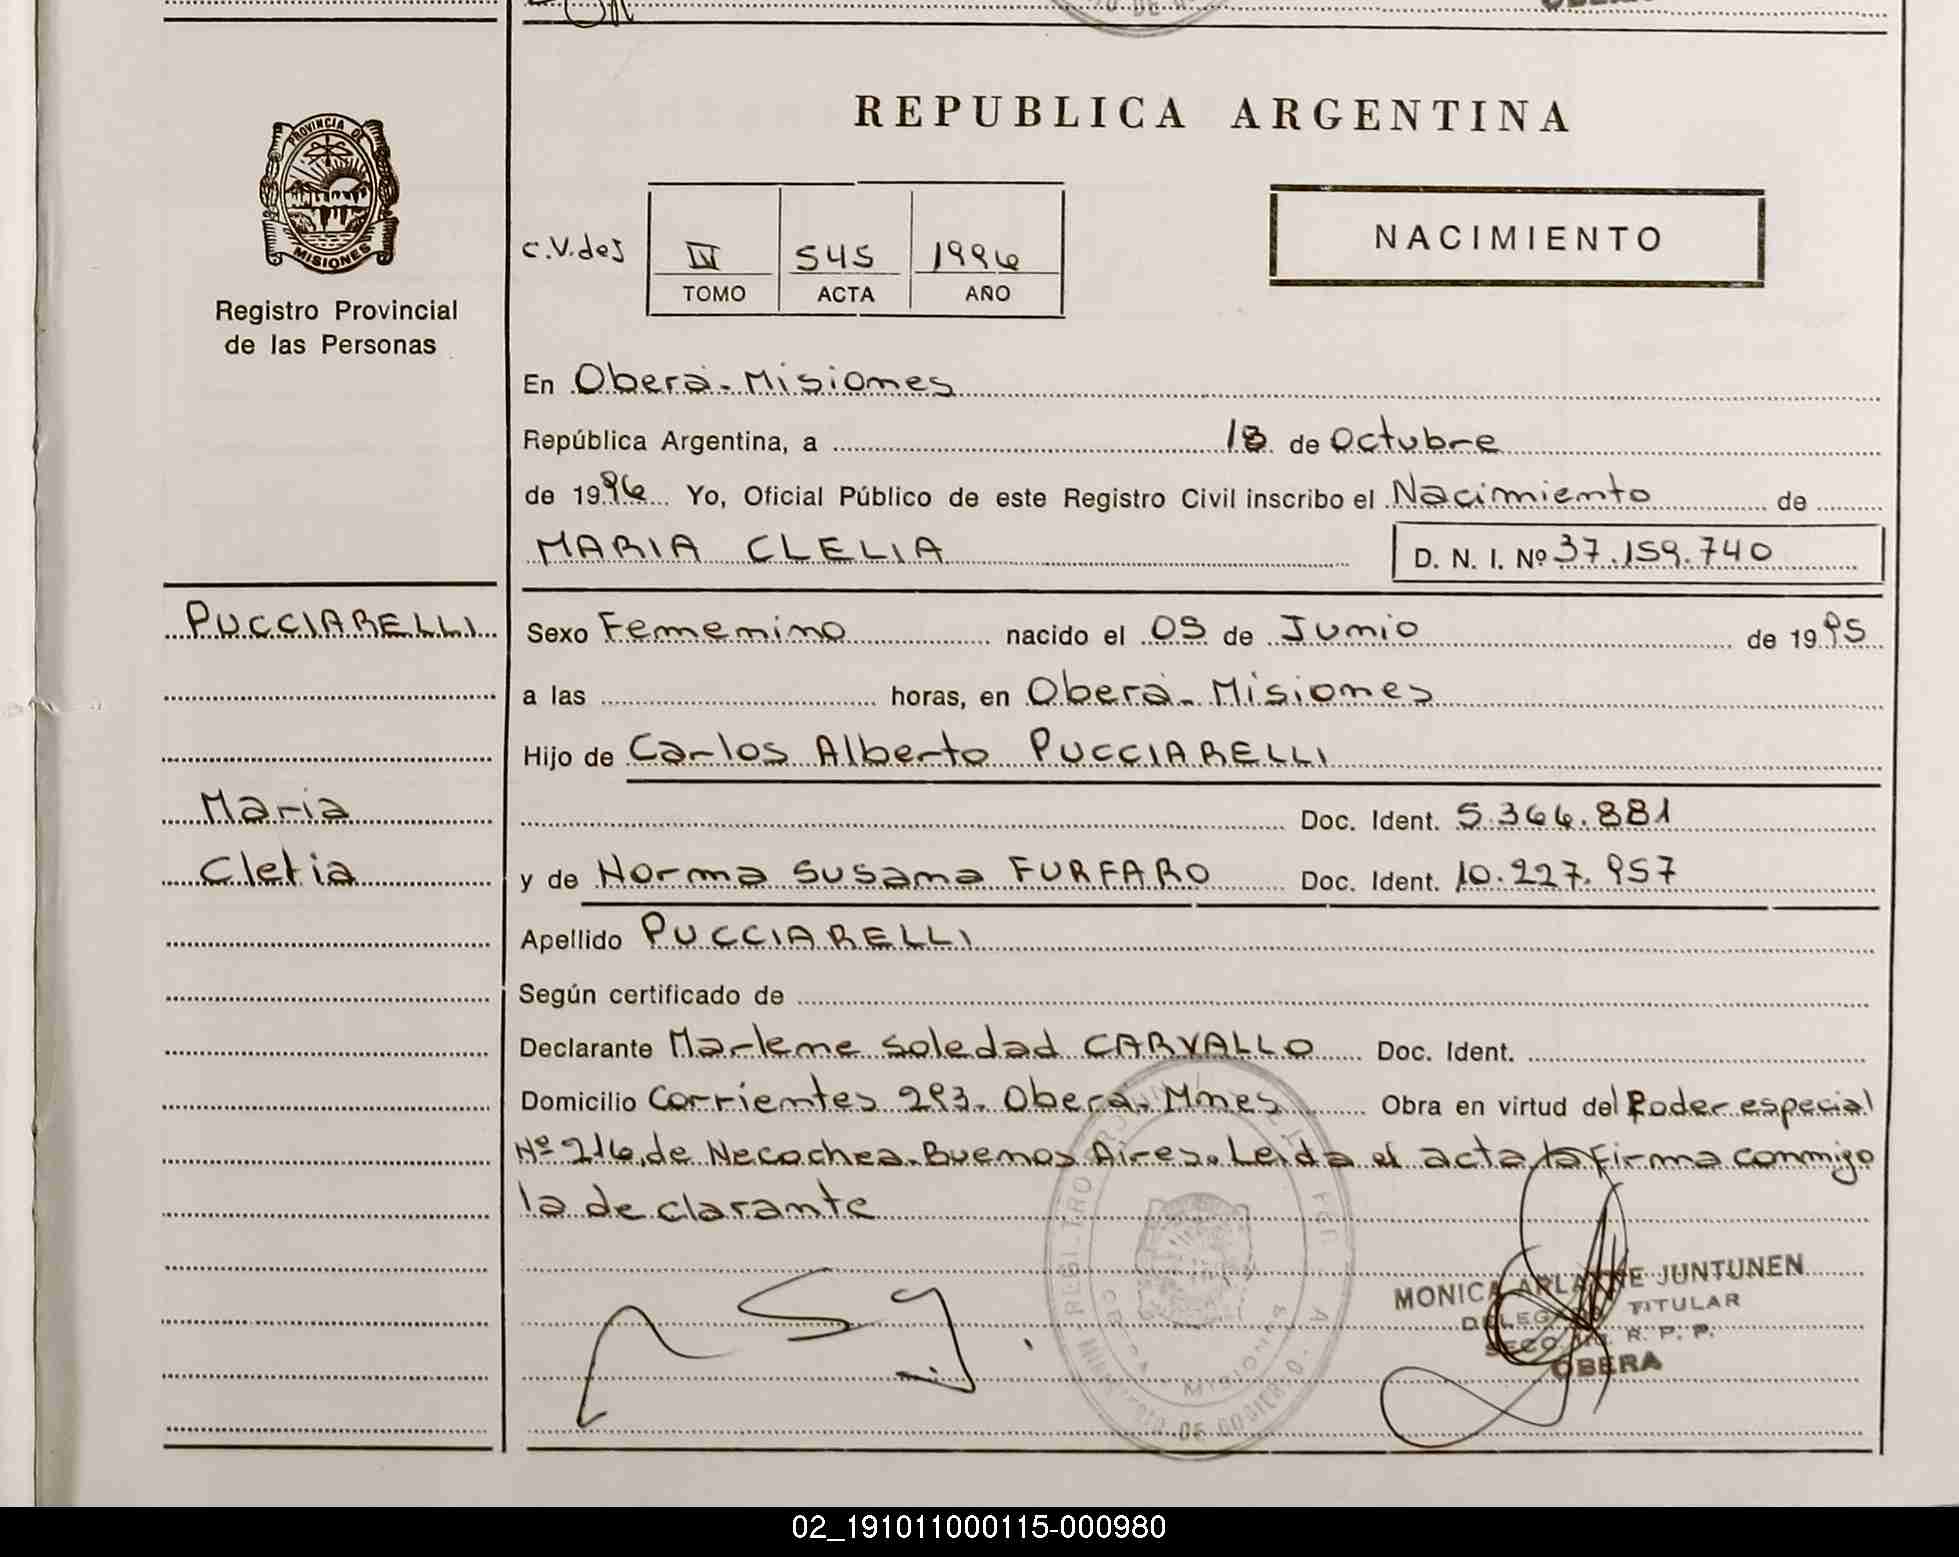 REPUBLICA ARGENTINA
PROVINCIA DE
MISIONES
Registro Provincial
de las Personas
IV 545 1996
TOMO ACTA AÑO
NACIMIENTO
En Oberá-Misiones
República Argentina, a 18 de Octubre
de 1996 Yo, Oficial Público de este Registro Civil inscribo el Nacimiento de
MARIA CLELIA D. N. I. Nº 37.159.740
PUCCIARELLI
Maria
Clelia
Sexo Femenino nacido el 05 de Junio de 1995
a las horas, en Oberá-Misiones
Hijo de Carlos Alberto PUCCIARELLI
Doc. Ident. 5.366.881
y de Norma Susana FURFARO Doc. Ident. 10.227.957
Apellido PUCCIARELLI
Según certificado de
Declarante Marlene Soledad CARVALLO Doc. Ident.
Domicilio Corrientes 293. Oberá. Mnes Obra en virtud del Poder especial
Nº 216, de Necochea. Buenos Aires. Leida el acta, la firma conmigo
la declarante
MONICA ARLAYNE JUNTUNEN
TITULAR
R. P. P.
OBERA
MISIONES
02_191011000115-000980